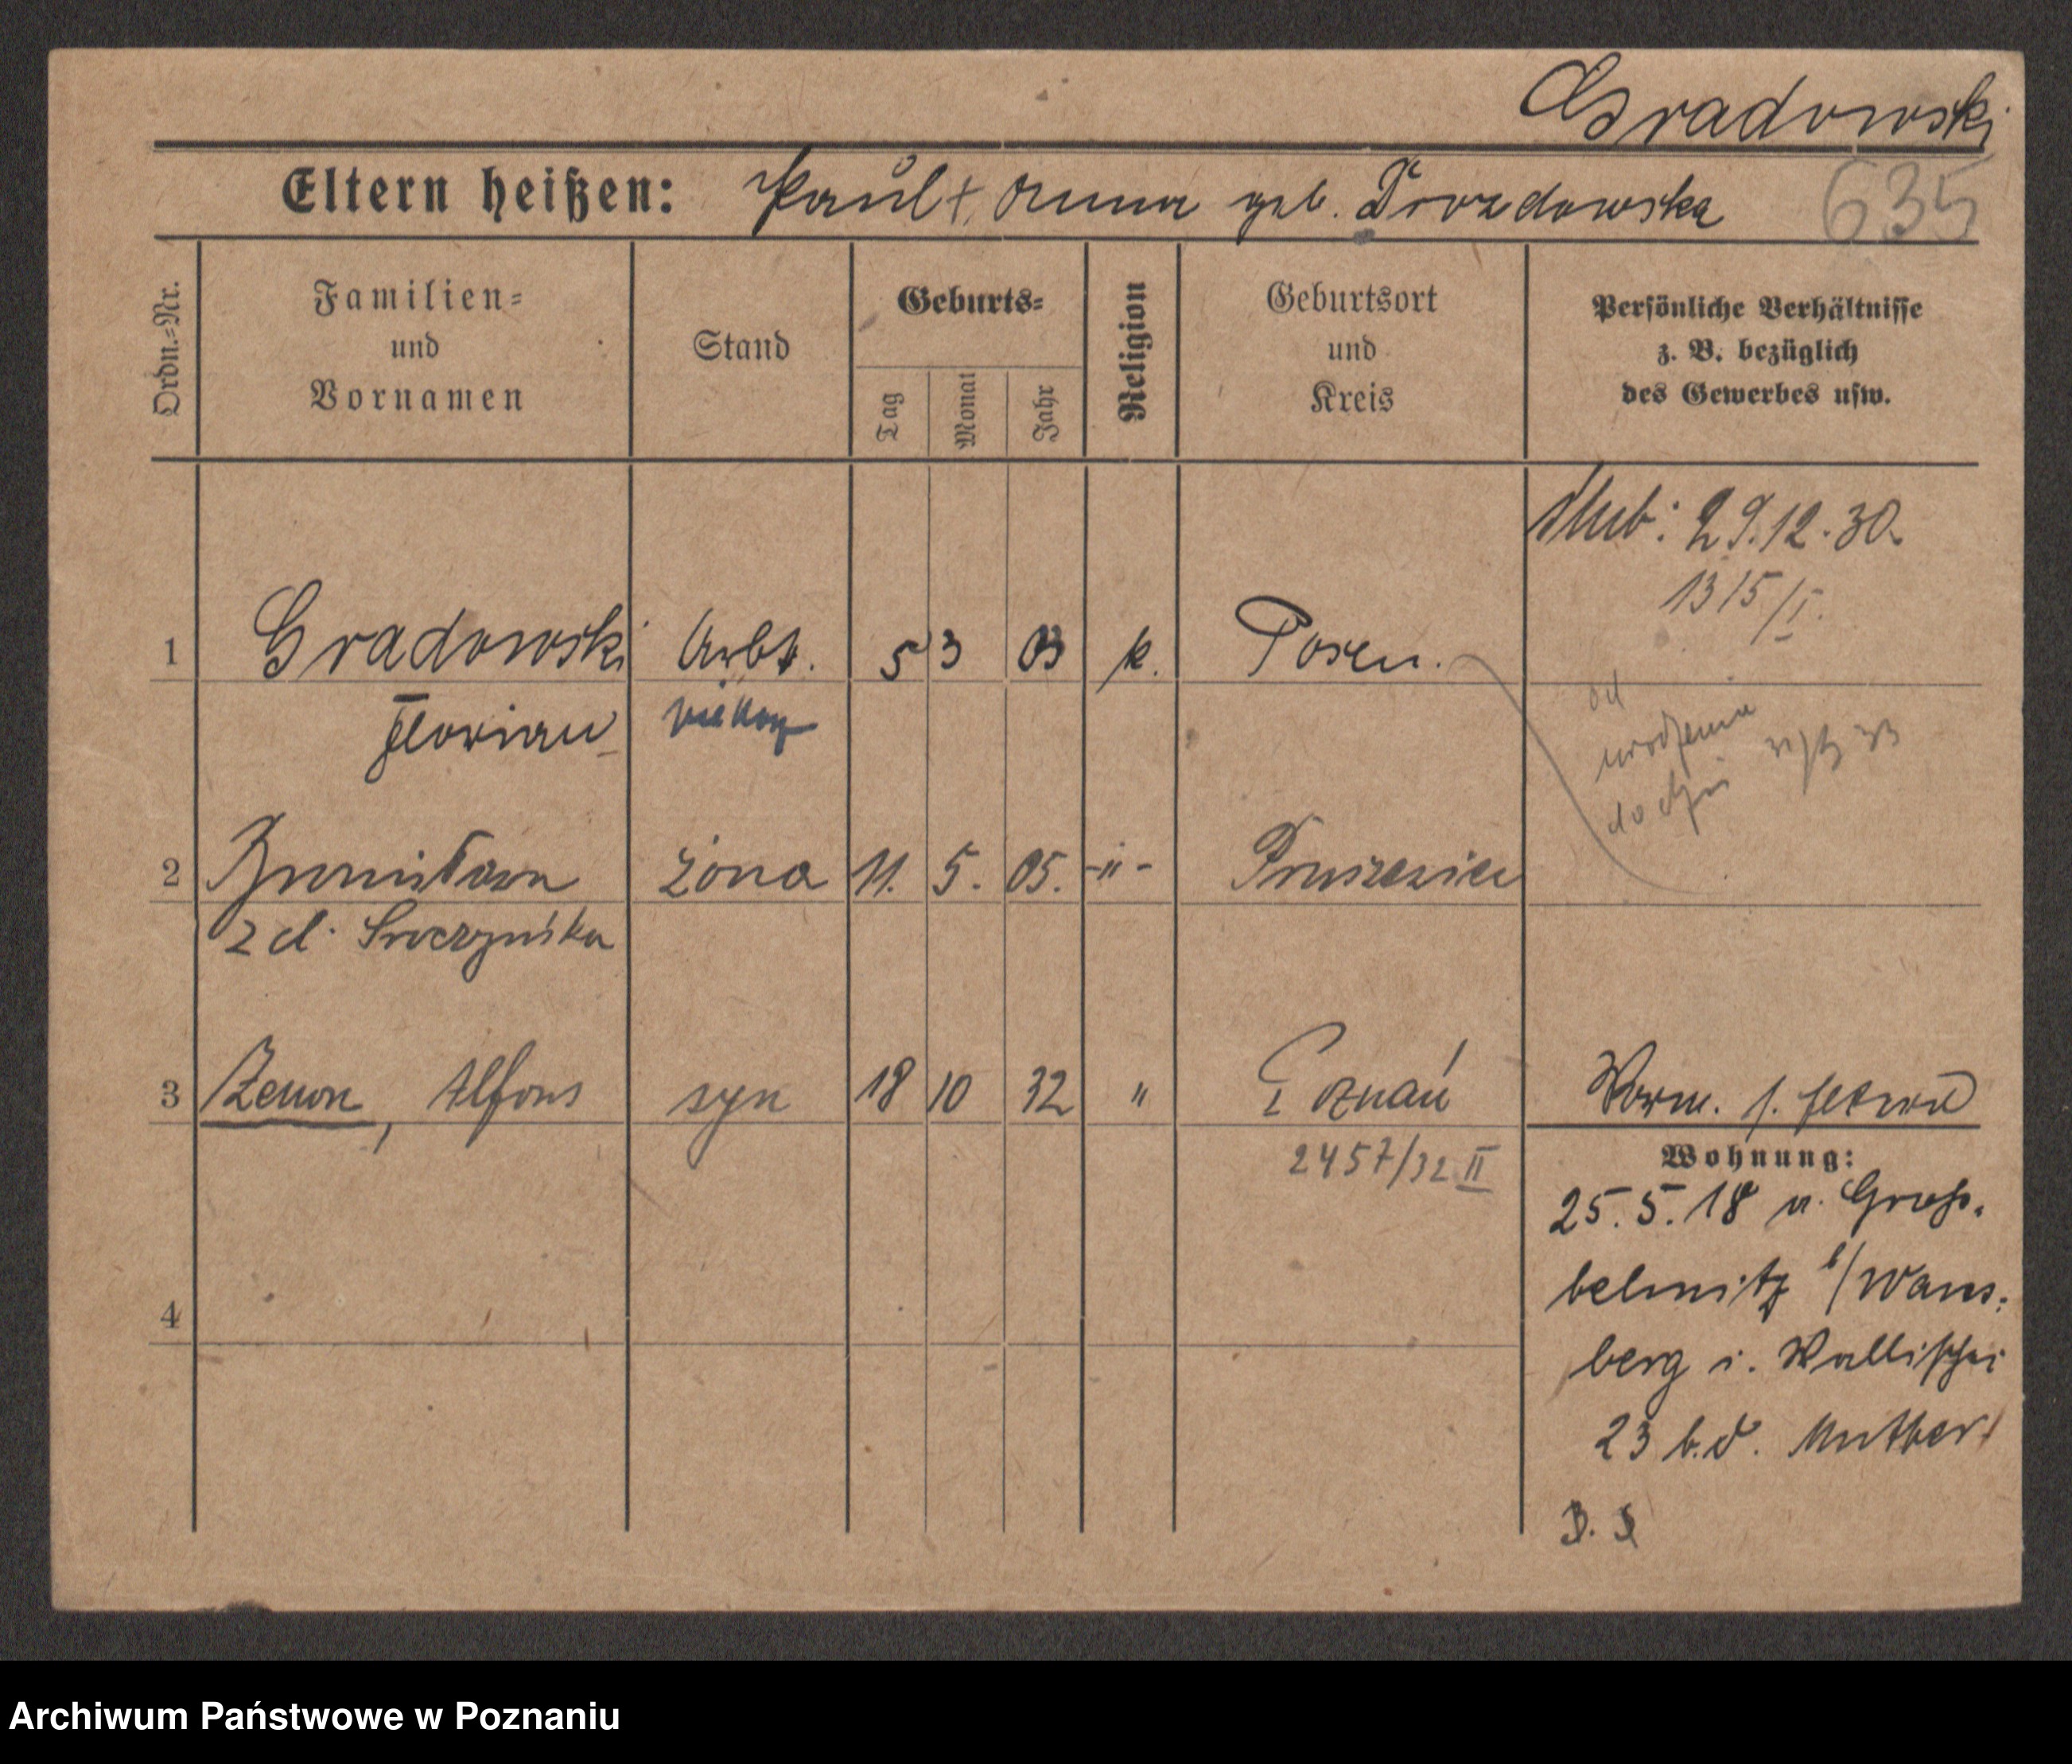 Gradowski
Eltern heißen: Paul +, Anna geb. Drozdowska 635
Ordn.=Nr.
Familien=
und
Vornamen
Stand
Geburts=
Tag
Monat
Jahr
Religion
Geburtsort
und
Kreis
Persönliche Verhältnisse
z. B. bezüglich
des Gewerbes usw.
ślub: 29.12.30.
1315/I.
1 Gradowski Arbt. 5 3 03 k. Posen.
Florian
od
urodzenia
do dziś 33
2 Bronisława żona 11. 5. 05. -"-
z d. Sroczyńska
3 Zenon, Alfons syn 18 10 32 " Poznań
2457/32 II
Worm. s.
Wohnung:
25. 5. 18 v. Groß-
belmitz b/Wans-
berg i. Wallischei
23 b. d. Mutter.
4
Archiwum Państwowe w Poznaniu